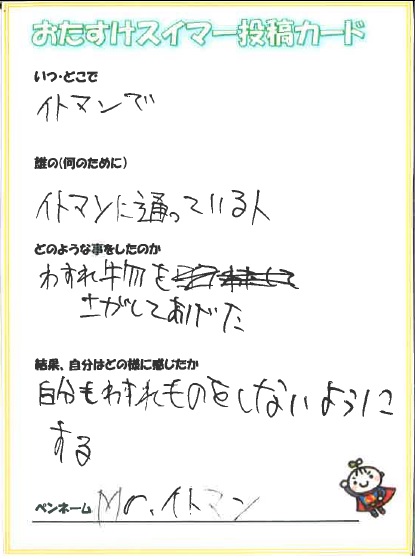 おたすけスイマー投稿カード
いつ・どこで
イトマンで
誰の(何のために)
イトマンに通っている人
どのような事をしたのか
わすれ物を
さがしてあげた
結果、自分はどの様に感じたか
自分もわすれものをしないように
する
ペンネーム Mr.イトマン